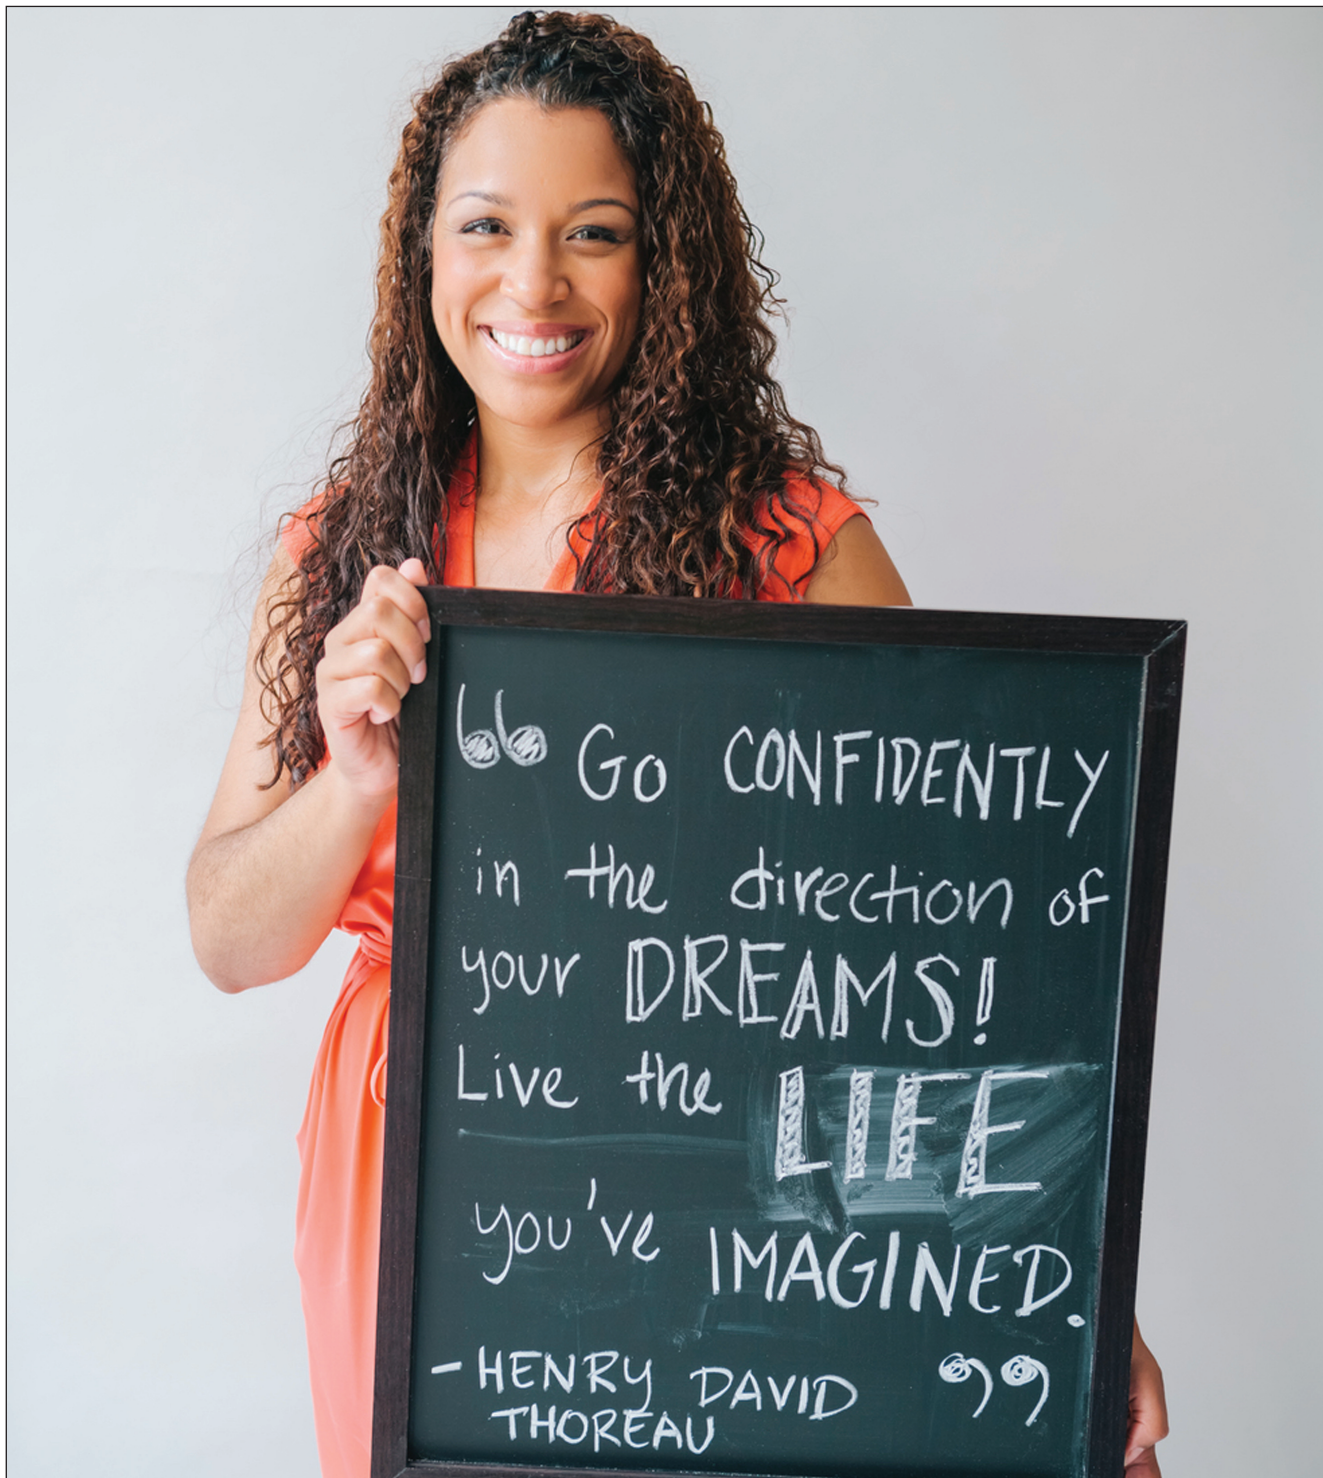 “ Go CONFIDENTLY
in the direction of
your DREAMS!
Live the LIFE
you've IMAGINED.
- HENRY DAVID ”
THOREAU